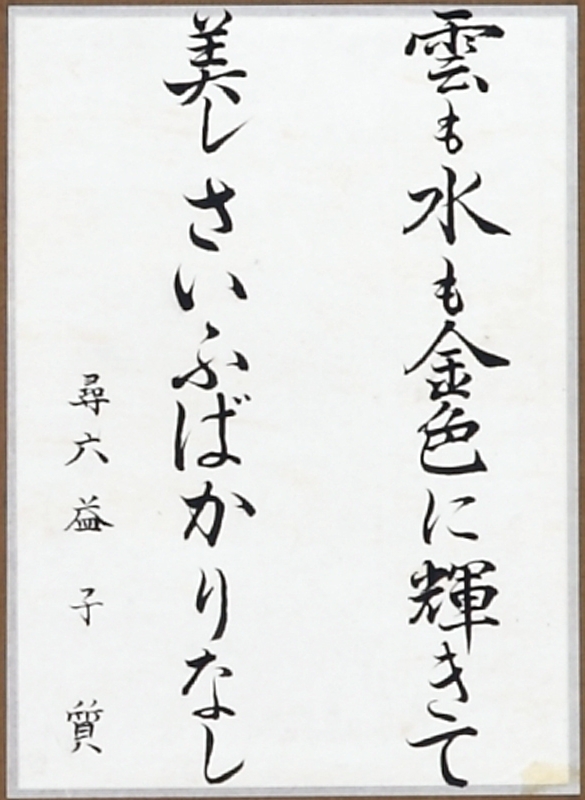 雲も水も金色に輝きて
美しさいふばかりなし
尋六益子 質